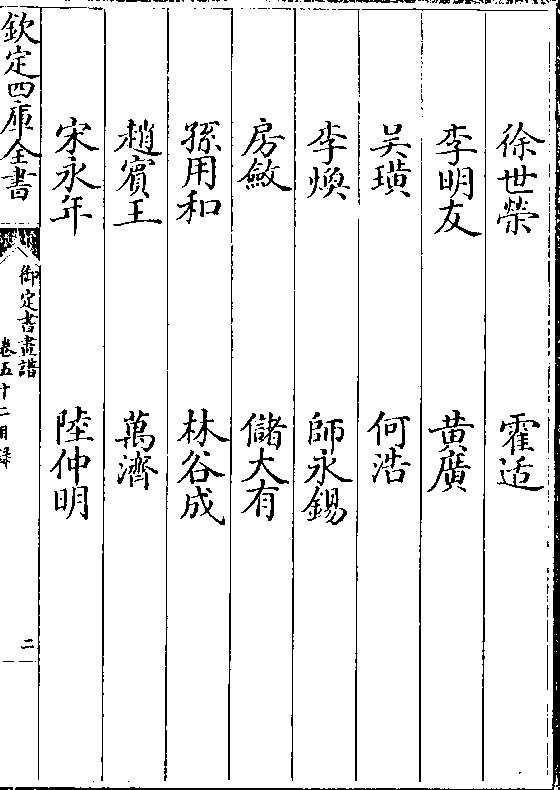 徐世榮　霍适
李明友　黄廣
吴璜　何浩
李煥　師永錫
房斂　儲大有
孫用和　林谷成
趙賓王　萬濟
宋永年　陸仲明
欽定四庫全書
御定書畫譜
卷五十二目錄
二